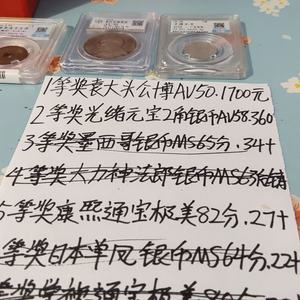 1等奖袁大头公博AV50.1700元
2等奖光绪元宝2角银币AV58.360
3等奖墨西哥银币MS65分.34十
4等奖大力神法郎银币MS63
5等奖康熙通宝极美82分.27十
等奖日本单凤银币MS64分.22十
通宝极美